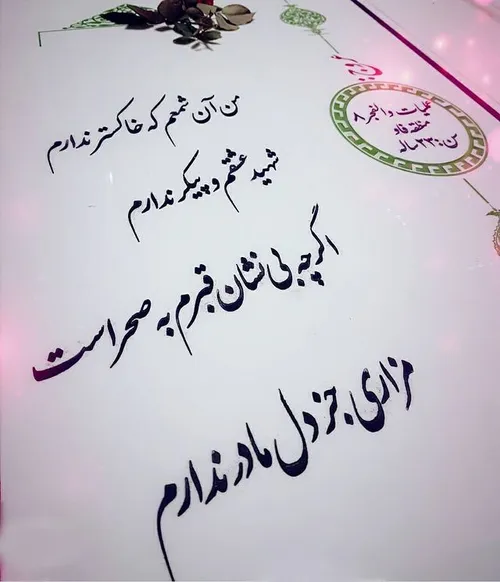 عملیات والفجر ۸
منطقه فاو
سن: ۲۳ ساله
من آن شمعم که خاکستر ندارم
شهید عشقم و پیکر ندارم
اگرچه بی نشان قبرم به صحراست
مزاری جز دل مادر ندارم